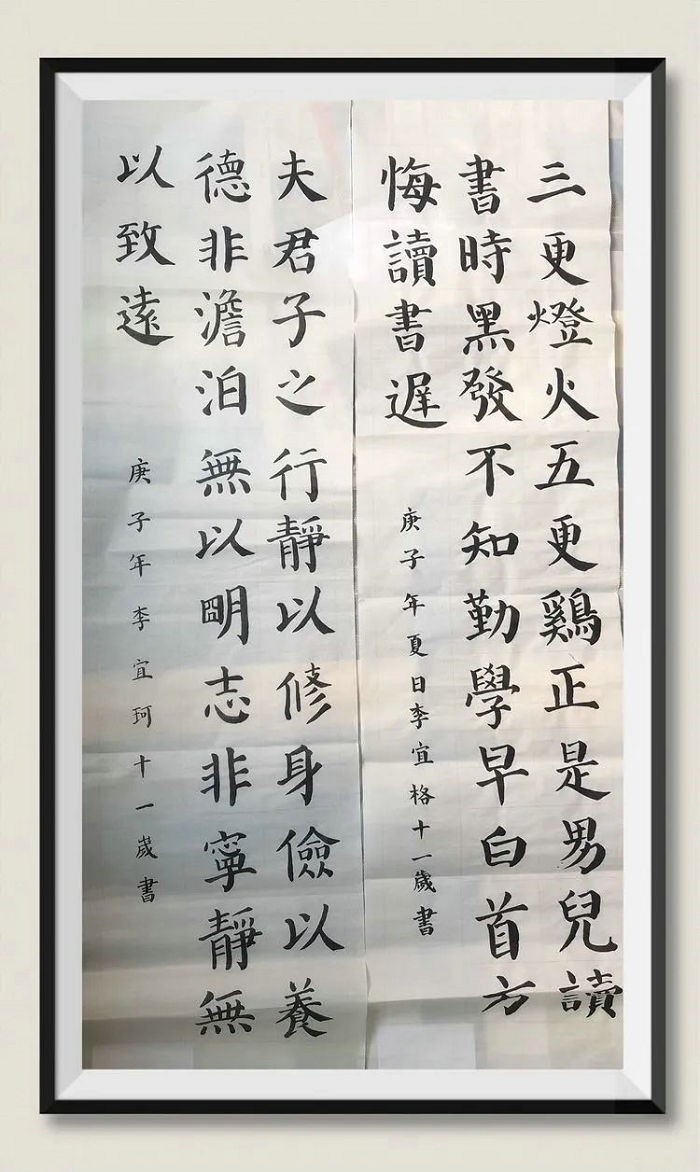 三更燈火五更鷄正是男兒讀
書時黑發不知勤學早白首方
悔讀書遲
庚子年夏日李宜格十一歲書
夫君子之行靜以修身儉以養
德非澹泊無以明志非寧靜無
以致遠
庚子年李宜珂十一歲書